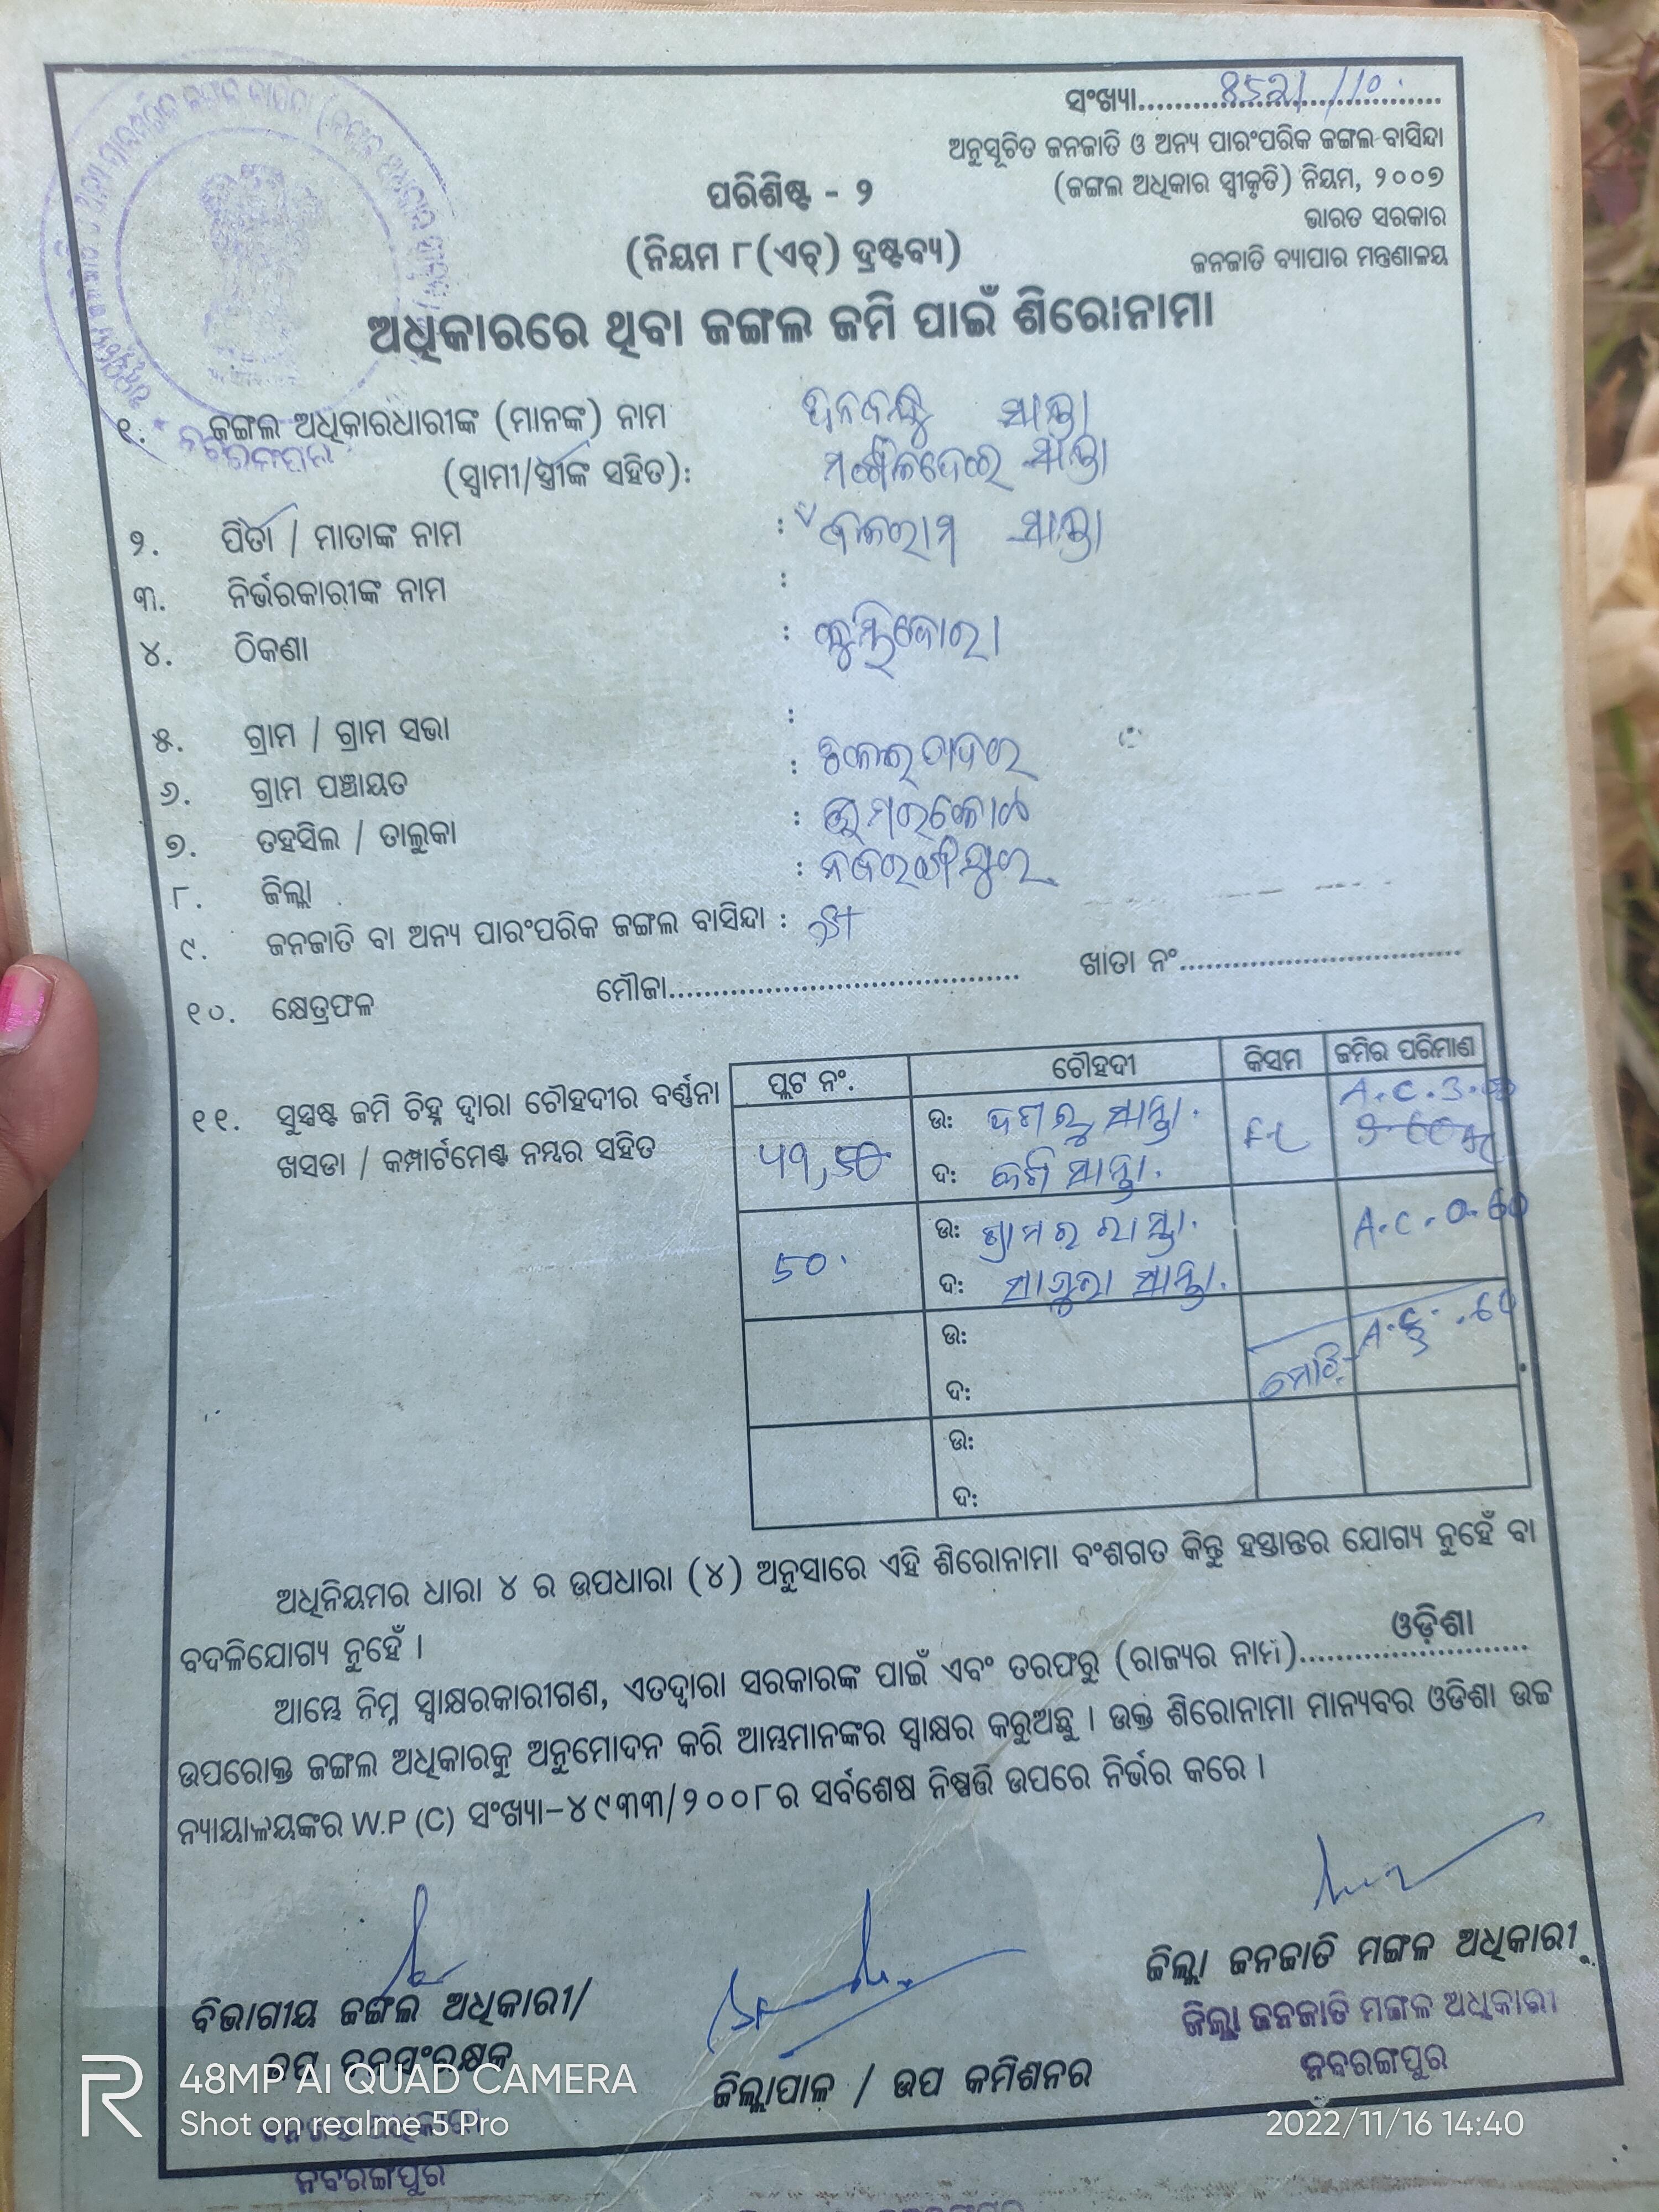 ସଂଖ୍ୟା
ଅନୁସୂଚିତ ଜନଜାତି ଓ ଅନ୍ୟ ପାରଂପରିକ ଜଙ୍ଗଲ ବାସିନ୍ଦା
(ଜଙ୍ଗଲ ଅଧିକାର ସ୍ୱୀକୃତି) ନିୟମ, ୨୦୦୭
ଭାରତ ସରକାର
ଜନଜାତି ବ୍ୟାପାର ମନ୍ତ୍ରଣାଳୟ
ପରିଶିଷ୍ଟ - ୨
(ନିୟମ ୮(ଏଚ୍) ଦ୍ରଷ୍ଟବ୍ୟ)
ଅଧିକାରରେ ଥିବା ଜଙ୍ଗଲ ଜମି ପାଇଁ ଶିରୋନାମା
୧. ଜଙ୍ଗଲ ଅଧିକାରଧାରୀଙ୍କ (ମାନଙ୍କ) ନାମ ସାନ୍ତା
(ସ୍ୱାମୀ/ସ୍ତ୍ରୀଙ୍କ ସହିତ): ସାନ୍ତା
୨. ପିତା / ମାତାଙ୍କ ନାମ : ବଳରାମ ସାନ୍ତା
୩. ନିର୍ଭରକାରୀଙ୍କ ନାମ :
୪. ଠିକଣା :
୫. ଗ୍ରାମ / ଗ୍ରାମ ସଭା :
୬. ଗ୍ରାମ ପଞ୍ଚାୟତ :
୭. ତହସିଲ / ତାଲୁକା : ଉମରକୋଟ
୮. ଜିଲ୍ଲା : ନବରଙ୍ଗପୁର
୯. ଜନଜାତି ବା ଅନ୍ୟ ପାରଂପରିକ ଜଙ୍ଗଲ ବାସିନ୍ଦା : ST
୧୦. କ୍ଷେତ୍ରଫଳ ମୌଜା ଖାତା ନଂ
୧୧. ସୁସ୍ପଷ୍ଟ ଜମି ଚିହ୍ନ ଦ୍ୱାରା ଚୌହଦୀର ବର୍ଣ୍ଣନା
ଖସଡା / କମ୍ପାର୍ଟମେଣ୍ଟ ନମ୍ବର ସହିତ
ପ୍ଲଟ ନଂ. ଚୌହଦୀ କିସମ ଜମିର ପରିମାଣ
ଉ: ସାନ୍ତା.
ଦ: ସାନ୍ତା.
50. ଉ: ଗ୍ରାମର ରାସ୍ତା. A.C. 0.60
ଦ: ସାନ୍ତା.
ଉ:
ଦ: ମୋଟ-
ଉ:
ଦ:
ଅଧିନିୟମର ଧାରା ୪ ର ଉପଧାରା (୪) ଅନୁସାରେ ଏହି ଶିରୋନାମା ବଂଶଗତ କିନ୍ତୁ ହସ୍ତାନ୍ତର ଯୋଗ୍ୟ ନୁହେଁ ବା
ବଦଳିଯୋଗ୍ୟ ନୁହେଁ ।
ଆମ୍ଭେ ନିମ୍ନ ସ୍ୱାକ୍ଷରକାରୀଗଣ, ଏତଦ୍ୱାରା ସରକାରଙ୍କ ପାଇଁ ଏବଂ ତରଫରୁ (ରାଜ୍ୟର ନାମ) ଓଡ଼ିଶା
ଉପରୋକ୍ତ ଜଙ୍ଗଲ ଅଧିକାରକୁ ଅନୁମୋଦନ କରି ଆମ୍ଭମାନଙ୍କର ସ୍ୱାକ୍ଷର କରୁଅଛୁ । ଉକ୍ତ ଶିରୋନାମା ମାନ୍ୟବର ଓଡିଶା ଉଚ୍ଚ
ନ୍ୟାୟାଳୟଙ୍କର W.P (C) ସଂଖ୍ୟା-୪୯୩୩/୨୦୦୮ର ସର୍ବଶେଷ ନିଷ୍ପତ୍ତି ଉପରେ ନିର୍ଭର କରେ ।
ବିଭାଗୀୟ ଜଙ୍ଗଲ ଅଧିକାରୀ/
ଉପ ବନସଂରକ୍ଷକ
ନବରଙ୍ଗପୁର
ଜିଲ୍ଲାପାଳ / ଉପ କମିଶନର
ଜିଲ୍ଲା ଜନଜାତି ମଙ୍ଗଳ ଅଧିକାରୀ
ଜିଲ୍ଲା ଜନଜାତି ମଙ୍ଗଳ ଅଧିକାରୀ
ନବରଙ୍ଗପୁର
48MP AI QUAD CAMERA
Shot on realme 5 Pro
2022/11/16 14:40